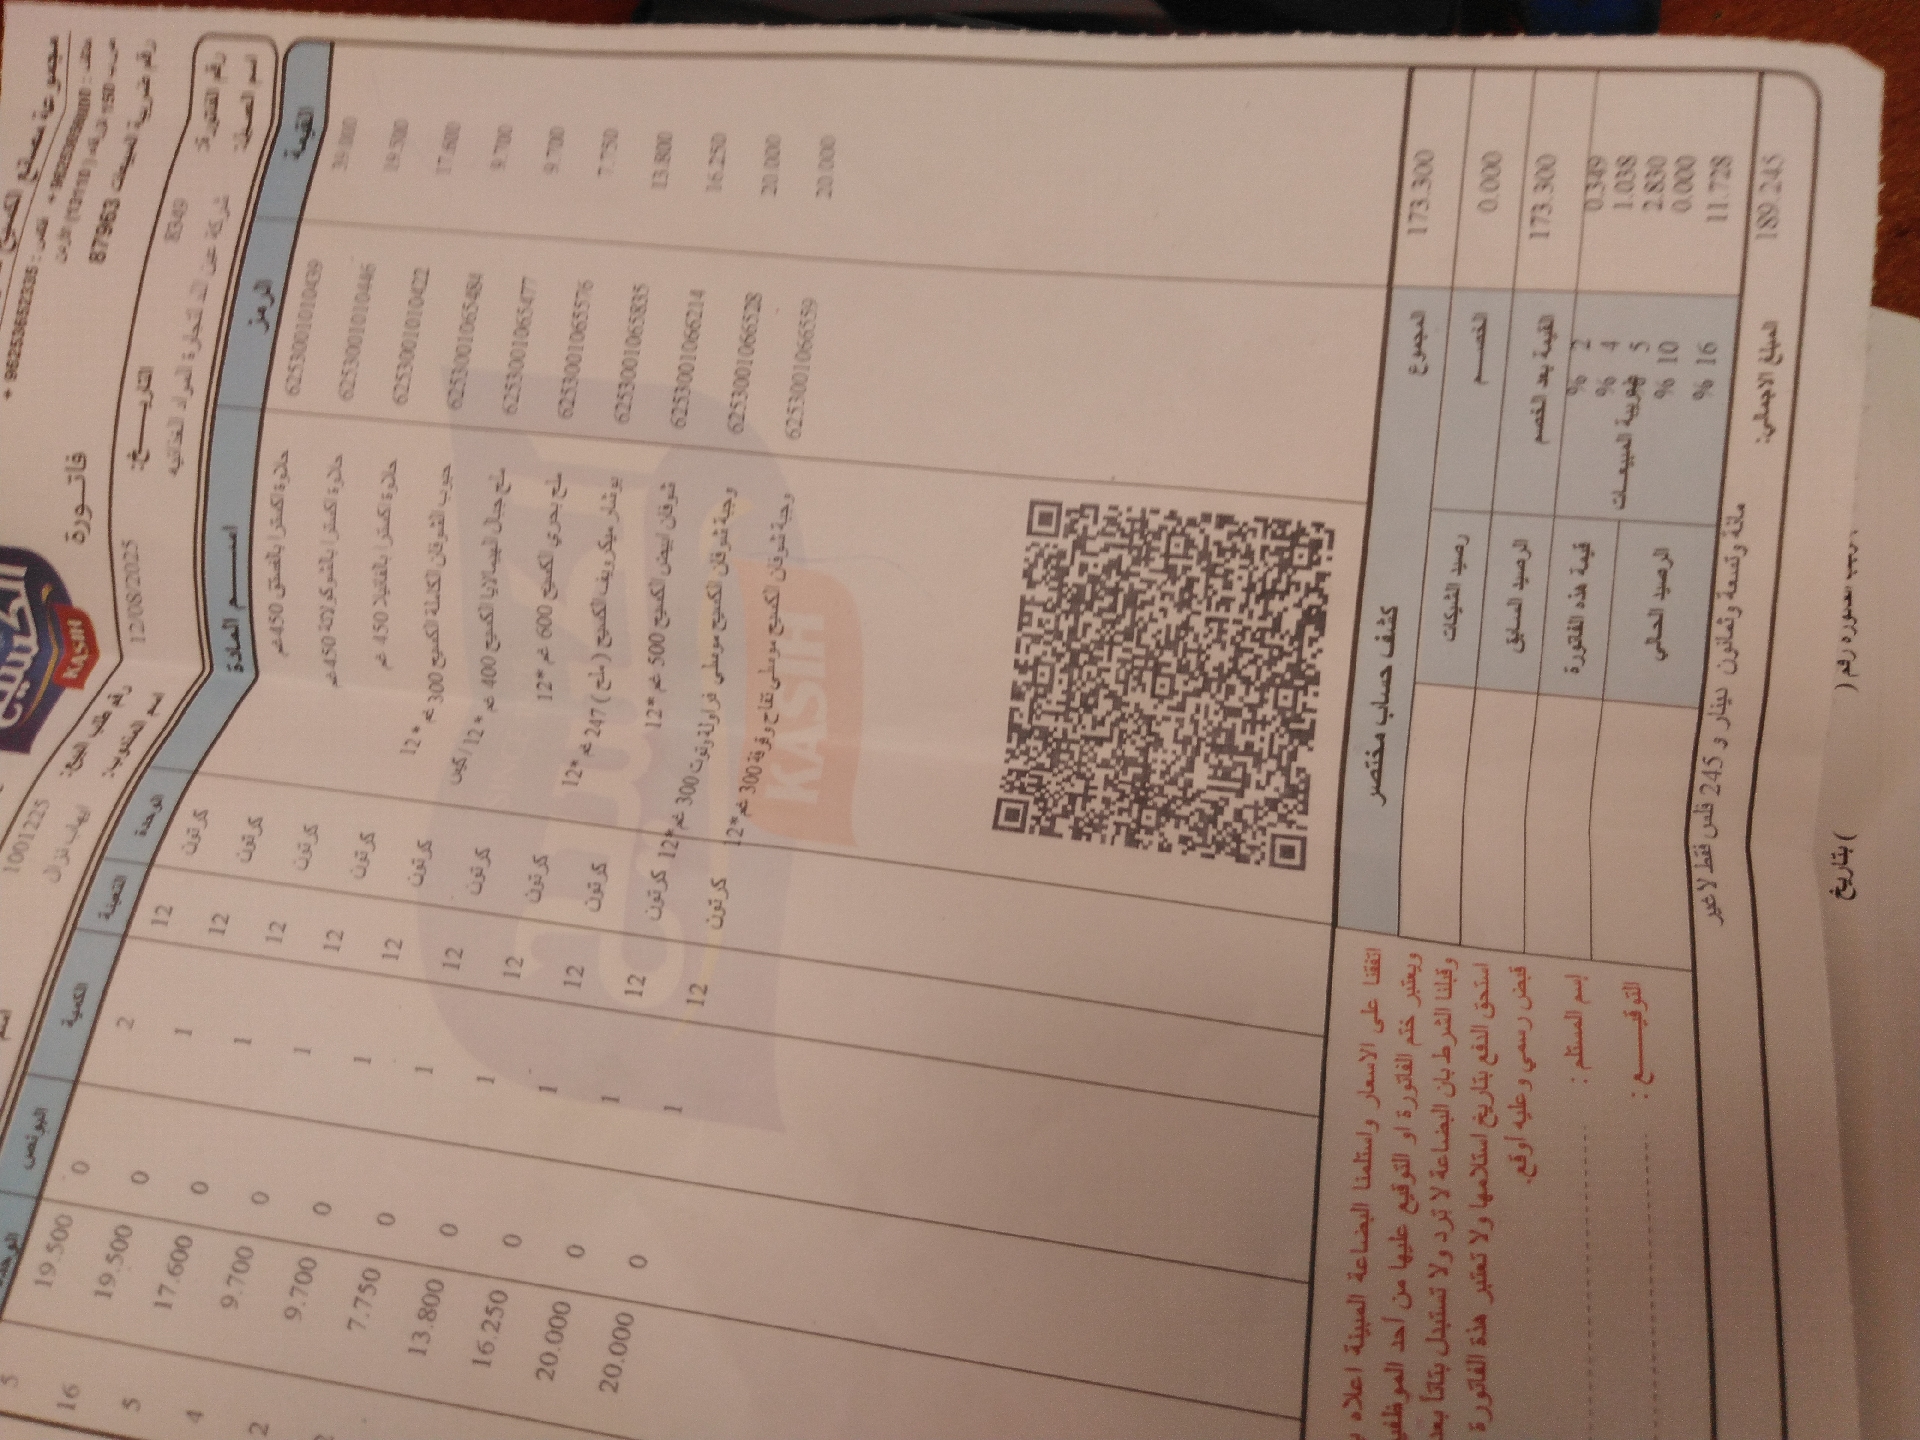 مجموعة مصانع الكسيح
+ 96253652335
87963 رقم ضريبة المبيعات
الكسيح
KASIH
فاتـورة
رقم الفاتورة: 8349
التاريـــخ: 12/08/2025
رقم طلب البيع: 10011225
اسم العميل: شركة عين الند لتجارة المواد الغذائية
اسم المندوب:
القيمة الرمز اســـم المادة الوحدة التعبئة الكمية البونص
39.000 6253001010439 حلاوة اكسترا بالفستق 450غم كرتون 12 2 0 19.500 5
19.500 6253001010446 حلاوة اكسترا بالشوكولاتة 450غم كرتون 12 1 0 19.500 16
17.600 6253001010422 حلاوة اكسترا بالفانيلا 450 غم كرتون 12 1 0 17.600 5
9.700 6253001065484 حبوب الشوفان الكاملة الكسيح 300 غم *12 كرتون 12 1 0 9.700 4
9.700 6253001065477 كرتون 12 1 0 9.700 2
7.750 6253001065576 ملح بحري الكسيح 600 غم *12 كرتون 12 1 0 7.750
13.800 6253001065835 بوشار ميكرويف الكسيح ( ملح ) 247 غم *12 كرتون 12 1 0 13.800
16.250 6253001066214 شوفان ابيض الكسيح 500 غم *12 كرتون 12 1 0 16.250
20.000 6253001066528 وجبة شوفان الكسيح موسلي فراولة وتوت 300 غم *12 كرتون 12 1 0 20.000
20.000 6253001066559 وجبة شوفان الكسيح موسلي تفاح وقرفة 300 غم *12 كرتون 12 1 0 20.000
KASIH
كشف حساب مختصر
173.300 المجموع
0.000 الخصم
173.300 القيمة بعد الخصم
0.349 2 %
1.038 4 %
2.830 5 ضريبة المبيعـــات
0.000 10 %
11.728 16 %
رصيد الشيكات
الرصيد السابق
قيمة هذه الفاتورة
الرصيد الحالي
189.245 المبلغ الاجمالي:
مائة وتسعة وثمانون دينار و 245 فلس فقط لا غير
اتفقنا على الاسعار واستلمنا البضاعة المبينة اعلاه
ويعتبر ختم الفاتورة او التوقيع عليها من احد
وقبلنا الشرط بان البضاعة لا ترد ولا تستبدل بتاتا بعد
استحق الدفع بتاريخ استلامها ولا تعتبر هذة الفاتورة
قبض رسمي وعليه أوقع.
إسم المستلم :
التوقيـــــع :
) بتاريخ